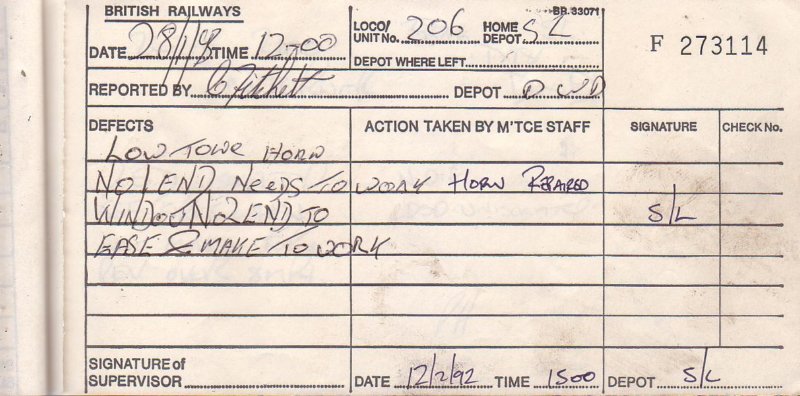 BRITISH RAILWAYS
BR.33071
DATE 28/1/92 TIME 12-00
LOCO/ UNIT No. 206 HOME DEPOT SL
F 273114
DEPOT WHERE LEFT
REPORTED BY DEPOT
DEFECTS ACTION TAKEN BY M'TCE STAFF SIGNATURE CHECK No.
LOW TONE HORN
NO1 END NEEDS TO WORK HORN REPAIRED
WINDOW NO2 END TO S/L
EASE & MAKE TO WORK
SIGNATURE of
SUPERVISOR DATE 12/2/92 TIME 1500 DEPOT S/L